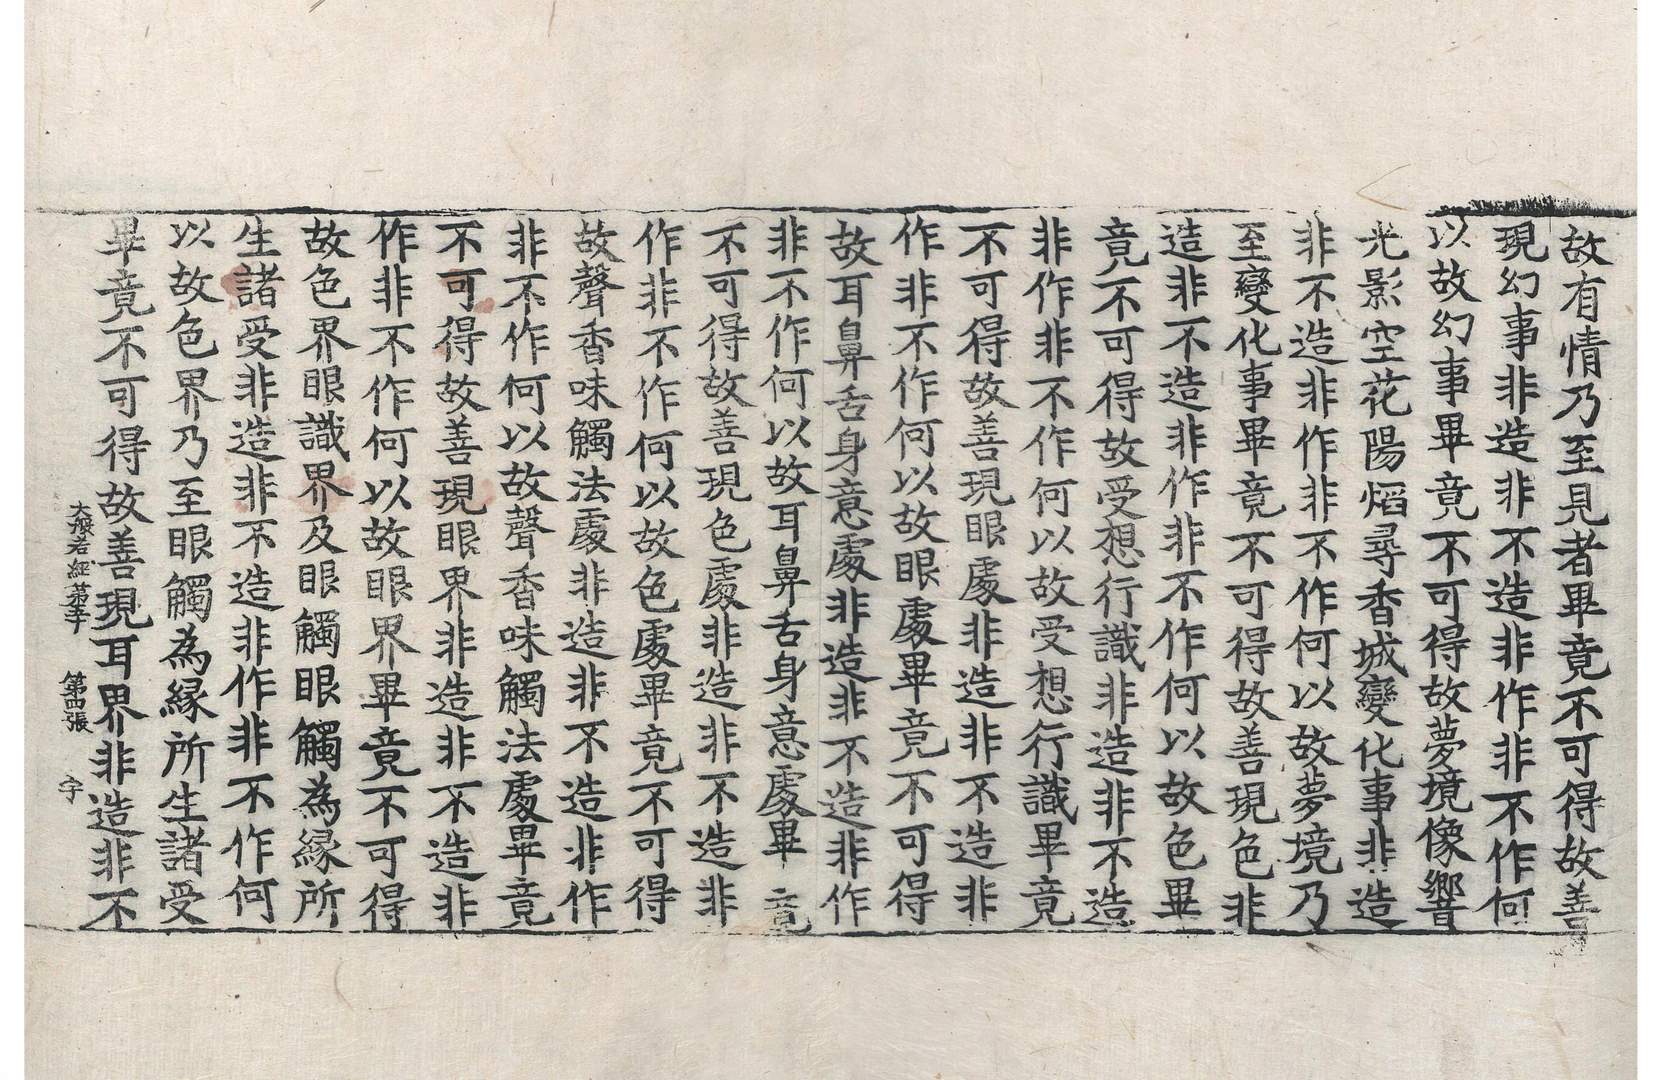 故有情乃至見者畢竟不可得故善
現幻事非造非不造非作非不作何
以故幻事畢竟不可得故夢境像響
光影空花陽熖尋香城變化事非造
非不造非作非不作何以故夢境乃
至變化事畢竟不可得故善現色非
造非不造非作非不作何以故色畢
竟不可得故受想行識非造非不造
非作非不作何以故受想行識畢竟
不可得故善現眼處非造非不造非
作非不作何以故眼處畢竟不可得
故耳鼻舌身意處非造非不造非作
非不作何以故耳鼻舌身意處畢竟
不可得故善現色處非造非不造非
作非不作何以故色處畢竟不可得
故聲香味觸法處非造非不造非作
非不作何以故聲香味觸法處畢竟
不可得故善現眼界非造非不造非
作非不作何以故眼界畢竟不可得
故色界眼識界及眼觸眼觸為緣所
生諸受非造非不造非作非不作何
以故色界乃至眼觸為緣所生諸受
畢竟不可得故善現耳界非造非不
大般若經第五十 第四張 宇